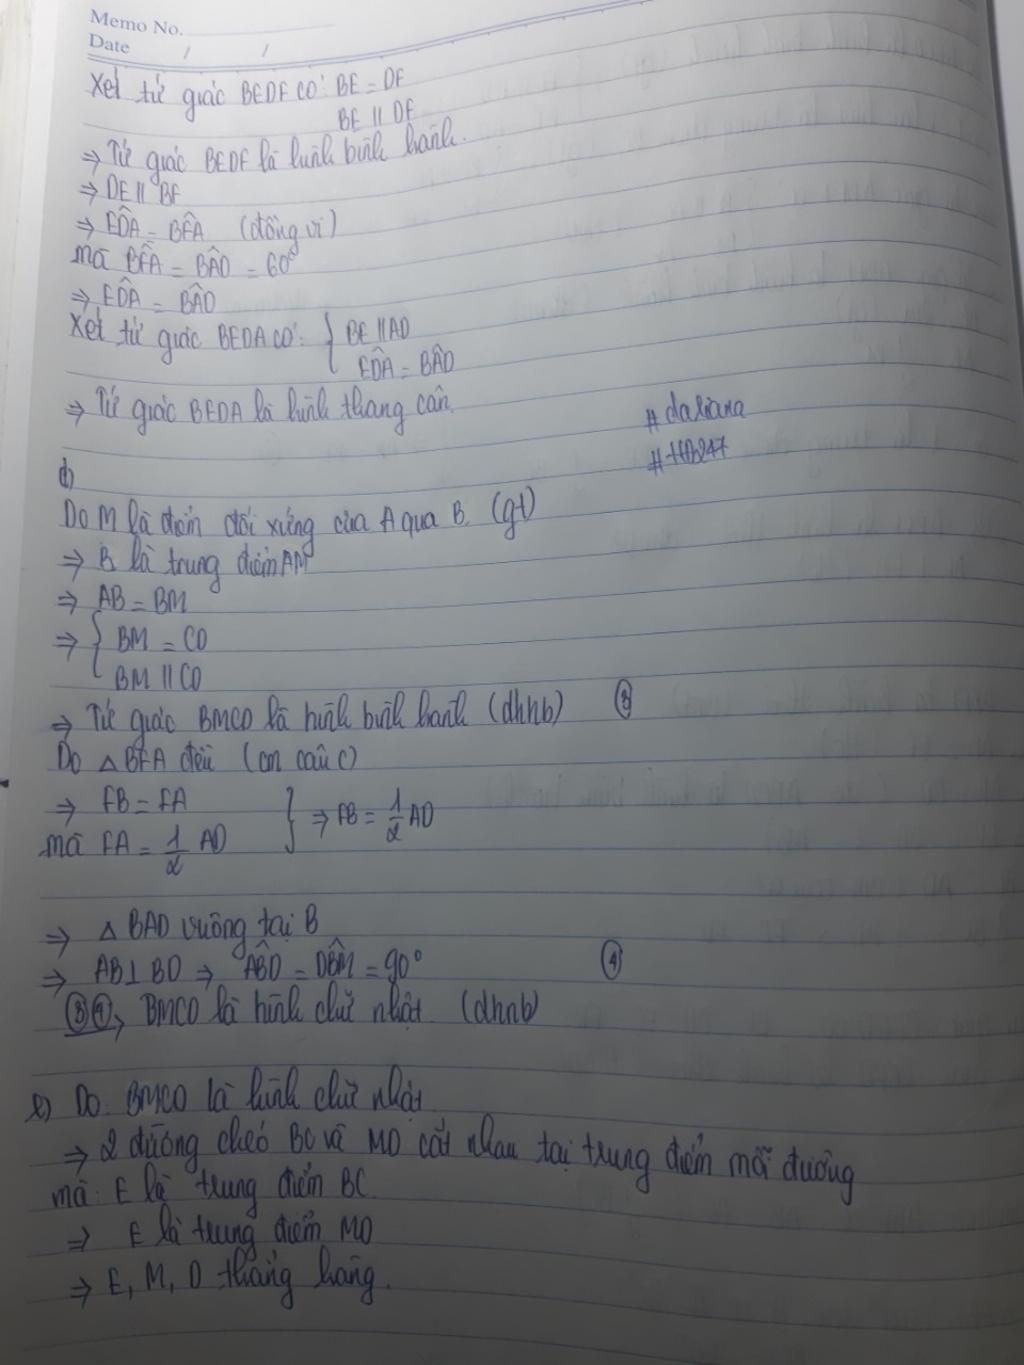 Memo No.
Date / /
Xét tứ giác BEDF có: BE = DF
BE // DF
⇒ Tứ giác BEDF là hình bình hành.
⇒ DE // BF
⇒ EDA = BFA (đồng vị)
mà BFA = BAD = 60°
⇒ EDA = BAD
Xét tứ giác BEDA có: { BE // AD
EDA = BAD
⇒ Tứ giác BEDA là hình thang cân.
# dariana
# HĐ247
d)
Do M là điểm đối xứng của A qua B. (gt)
⇒ B là trung điểm AM
⇒ AB = BM
⇒ { BM = CD
BM // CD
⇒ Tứ giác BMCD là hình bình hành (dhnb) ③
Do △BFA đều (cm câu c)
⇒ FB = FA
mà FA = 1/2 AD } ⇒ FB = 1/2 AD
⇒ △ BAD vuông tại B
⇒ AB ⊥ BD ⇒ ABD = DBM = 90° ④
③④ ⇒ BMCD là hình chữ nhật (dhnb)
e) Do BMCD là hình chữ nhật
⇒ 2 đường chéo BC và MD cắt nhau tại trung điểm mỗi đường
mà: E là trung điểm BC
⇒ E là trung điểm MD
⇒ E, M, D thẳng hàng.